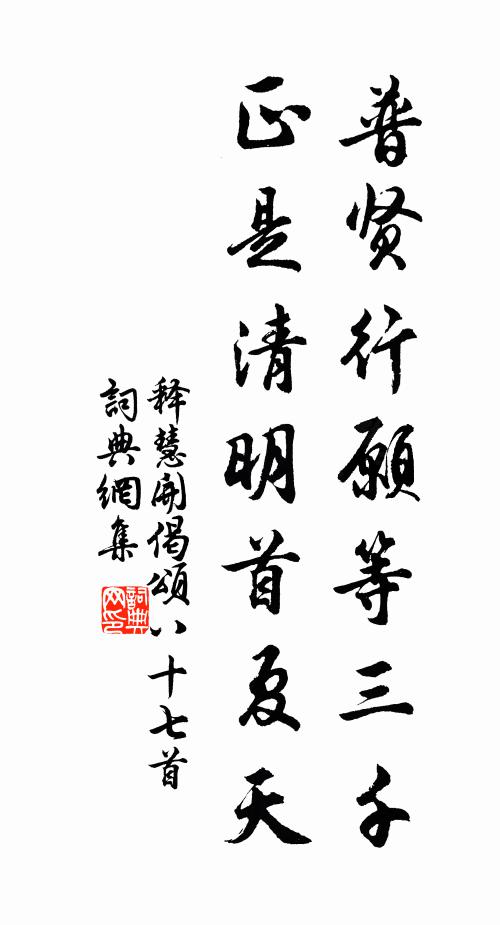 普贤行愿等三千
正是清明首夏天
释慧開偈頌八十七首
詞典網集
詞典网印